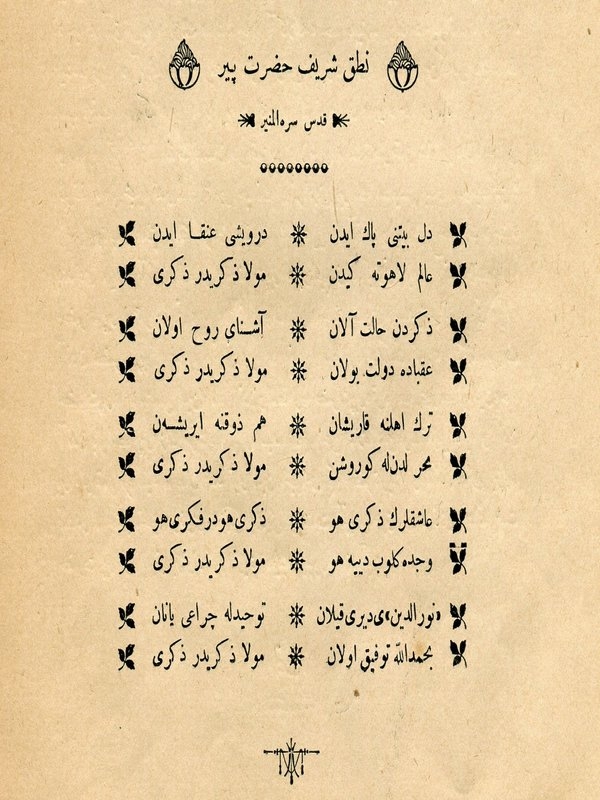 نطق شريف حضرت پير
قدس سره المنير
دل بيتنى پاك ايدن درويشى عنقا ايدن
عالم لاهوته گيدن مولا ذكريدر ذكرى
ذكردن حالت آلان آشناى روح اولان
عقباده دولت بولان مولا ذكريدر ذكرى
ترك اهلنه قاريشان هم ذوقنه ايريشهن
بحر لدن‌له كوروشن مولا ذكريدر ذكرى
عاشقلرك ذكرى هو ذكرى هودر فكرى هو
وجده كلوب دييه هو مولا ذكريدر ذكرى
«نورالدين»ى ديرى قيلان توحيدله چراغى يانان
بحمدالله توفيق اولان مولا ذكريدر ذكرى